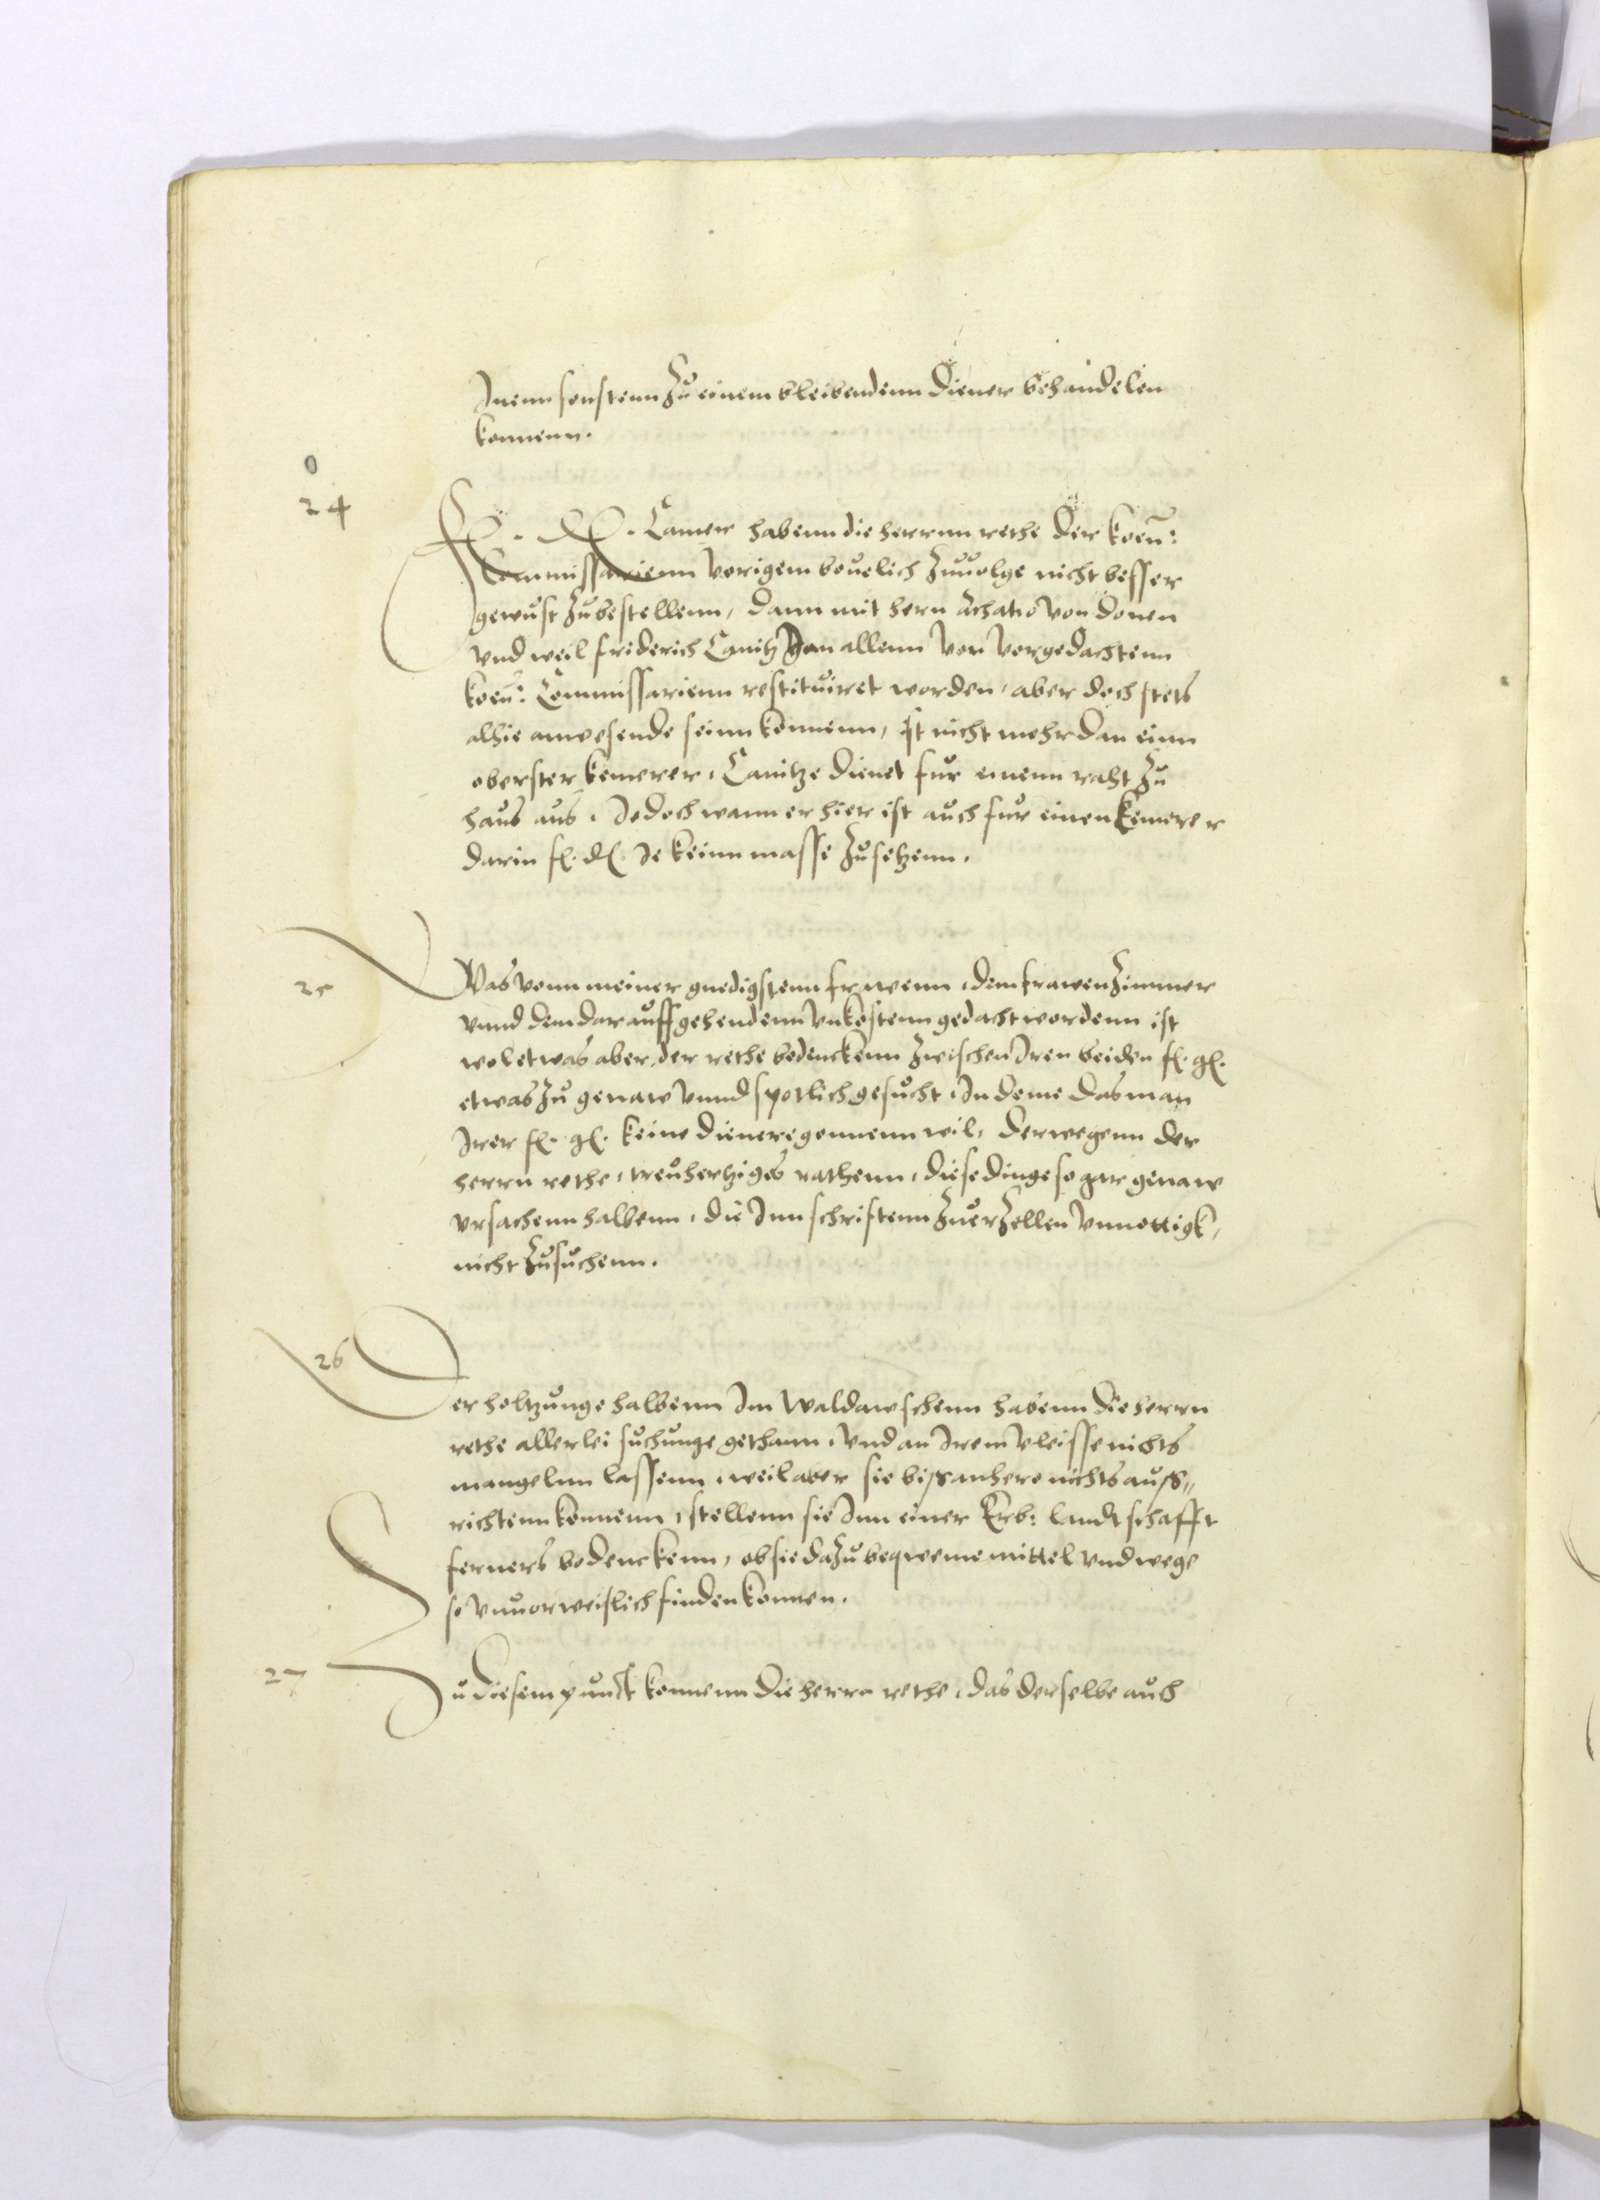 Inenn sonstenn zu einem bleibendenn Diener behandelen
konnenn.
0
24
F. D. Camer habenn die herrnn rethe der koen:
Commissarienn vorigem beuelich zuuolge nicht besser
gewust zubestellenn, dann mit hern Achatio von Donen
vnd weil friderich Canitz von allenn von vorgedachtenn
koen: Commissarienn restituiret worden, aber doch stets
alhie anwesende seinn konnenn, ist nicht mehr dan einn
oberster kemerer, Canitze dienet fur einenn raht zu
haus aus, Jedoch wann er hier ist auch fur einen kemerer
darin f. d. Je keinn masse zusetzenn.
25
Was vonn meiner gnedigstenn frawenn, dem frawenzimmer
vnnd dem darauff gehendenn vnkostenn gedacht wordenn ist
wol etwas aber der rethe bedenckenn zwischen Iren beiden f. g.
etwas zu genaw vnnd spotlich gesucht, In deme das man
Irer f. g. keine dienere gonnenn wil, Derwegenn der
herrn rethe, treuhertziges rathenn, diese dinge so gar genaw
vrsachenn halbenn, die Inn schriftenn zuerzellen vnnottigk,
nicht zusuchenn.
26
Der holtzunge halbenn Im Waldawschenn habenn die herrn
rethe allerlei suchunge gethann, vnd an Irem vleisse nichts
mangelnn lassenn, weil aber sie bissanhero nichts auss„
richtenn konnenn, stellenn sie Inn einer Erb: landtschafft
ferners bedenckenn, ob sie dazu beqweme mittel vnd wege
so vnuorweislich finden konnen.
27
Zu diesem punct konnenn die herrn rethe, das derselbe auch